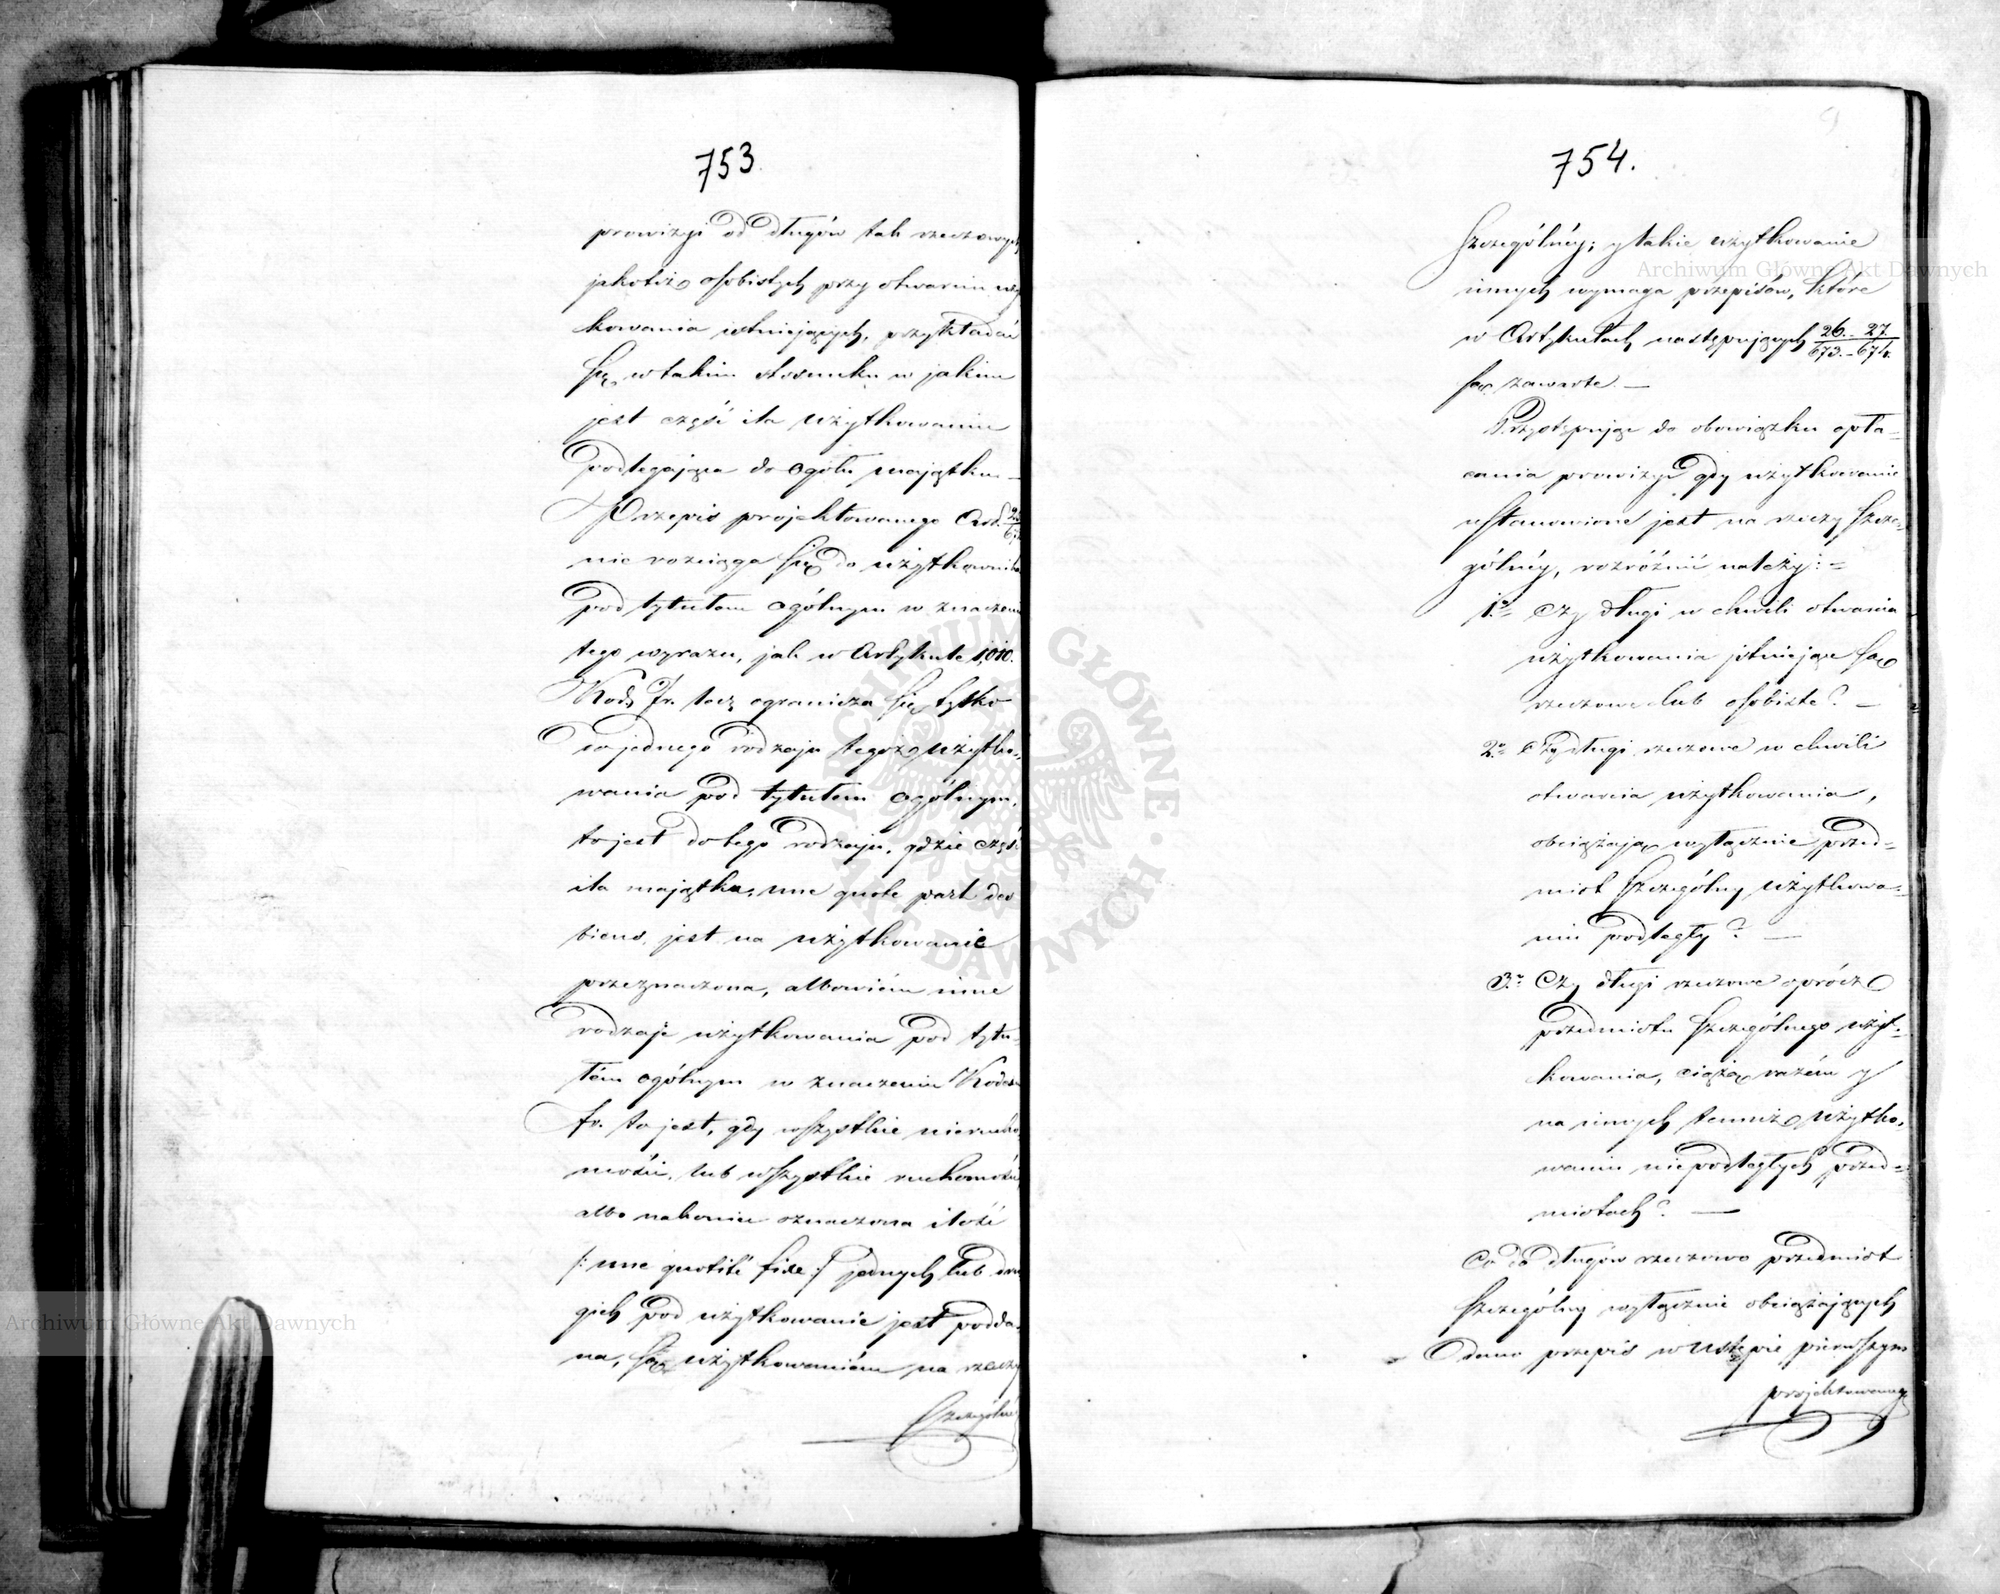 753.
prowizyi od długów tak rzeczowych
jakotéż osobistych przy otwarciu uży
kowania istniejących, przykładać
się w takim stosunku w jakim
jest część ita użytkowaniu
podlegająca do ogółu majątku —
Przepis projektowanego Art.
nie rozciąga się do użytkownika
pod tytułem ogólnym w znaczeniu
tego wyrazu, jak w Artykule 1,010.
Kod. fr. lecz ogranicza się tylko
do jednego rodzaju tegoż użytko-
wania pod tytułem ogólnym,
to jest do tego rodzaju, gdzie część
ita majątku, une quote part des
biens, jest na użytkowanie
przeznaczona, albowiém inne
rodzaje użytkowania pod tytu-
łem ogólnym w znaczeniu Kodexu
fr. to jest, gdy wszystkie nierucho
mości, lub wszystkie ruchomości,
albo nakoniec oznaczona ilość
/: une quotité fixe :/ jednych lub dru
gich pod użytkowanie jest podda-
na, są użytkowaniém na rzeczy
Szczególnéj
754.
Szczególnéj; y takie użytkowanie
innych wymaga przepisów, które
w Artykułach następujących 26. - 27.
673. - 674.
są zawarte. —
Przystępując do obowiązku opła-
cania prowizyi gdy użytkowanie
ustanowione jest na rzeczy szcze-
gólnéj, rozróżnić należy: =
1.° Czy długi w chwili otwarcia
użytkowania istniejące są
rzeczowe lub osobiste? —
2.° Czy długi rzeczowe w chwili
otwarcia użytkowania,
obciążają wyłącznie przed-
miot szczególny użytkowa-
niu podległy? —
3.° Czy długi rzeczowe oprócz
przedmiotu szczególnego użyt-
kowania, ciążą razém y
na innych temuż użytko-
waniu niepodległych przed-
miotach? —
Co do długów rzeczowo przedmiot
szczególny wyłącznie obciążających
Odano przepis w ustępie pierwszym
projektowanego
Archiwum Główne Akt Dawnych
Archiwum Główne Akt Dawnych
ARCHIWUM GŁÓWNE AKT DAWNYCH